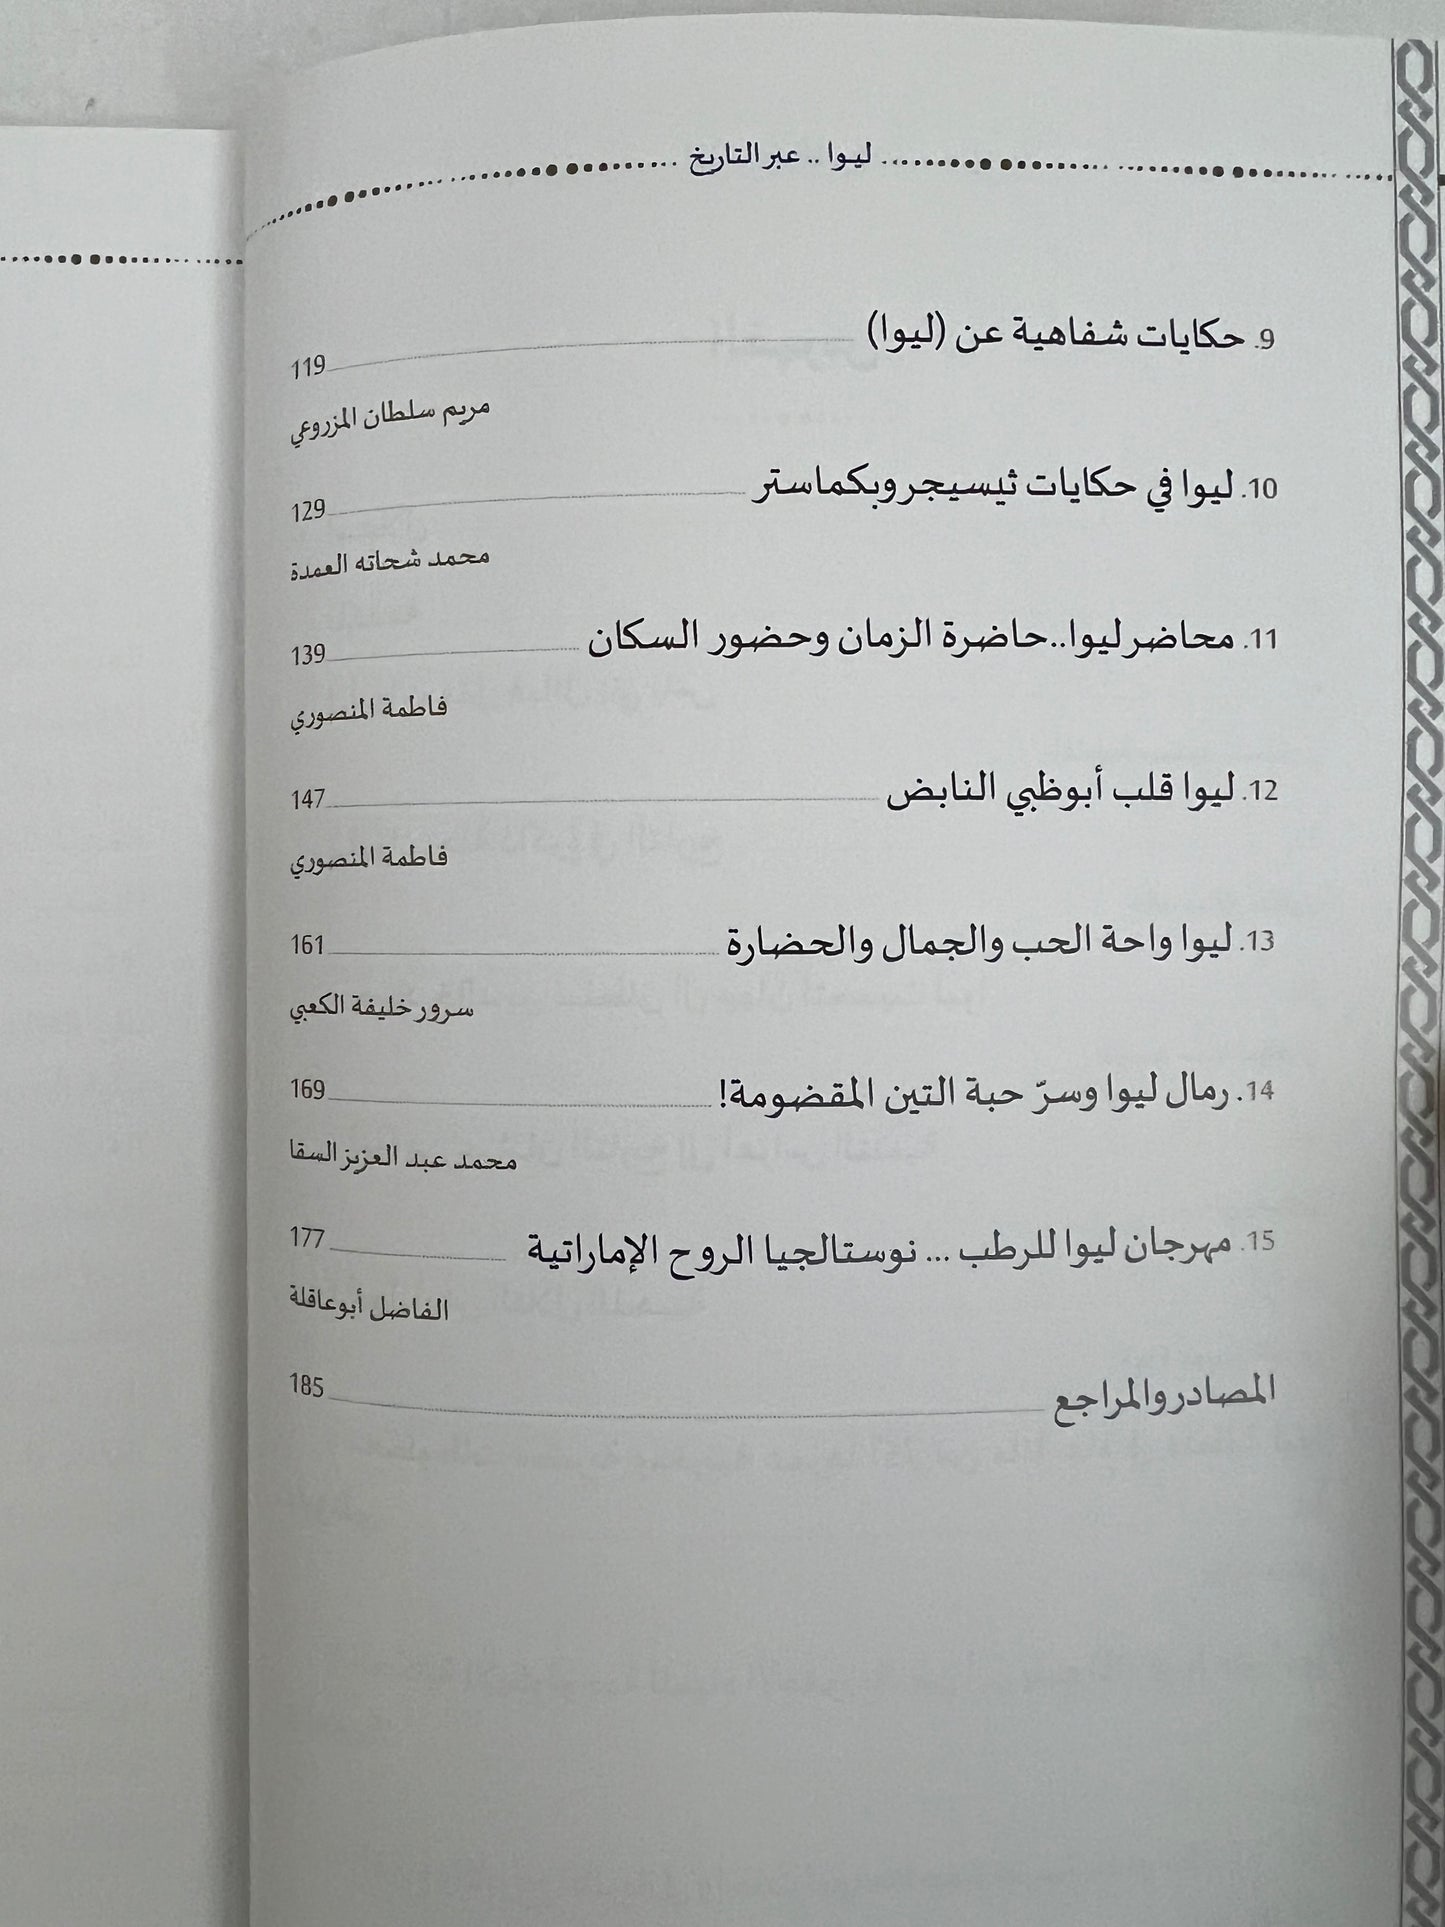 ليوا .. عبر التاريخ
9. حكايات شفاهية عن (ليوا) 119
مريم سلطان المزروعي
10. ليوا في حكايات ثيسيجر وبكماستر 129
محمد شحاته العمدة
11. محاضر ليوا..حاضرة الزمان وحضور السكان 139
فاطمة المنصوري
12. ليوا قلب أبوظبي النابض 147
فاطمة المنصوري
13. ليوا واحة الحب والجمال والحضارة 161
سرور خليفة الكعبي
14. رمال ليوا وسرّ حبة التين المقضومة! 169
محمد عبد العزيز السقا
15. مهرجان ليوا للرطب ... نوستالجيا الروح الإماراتية 177
الفاضل أبوعاقلة
المصادر والمراجع 185